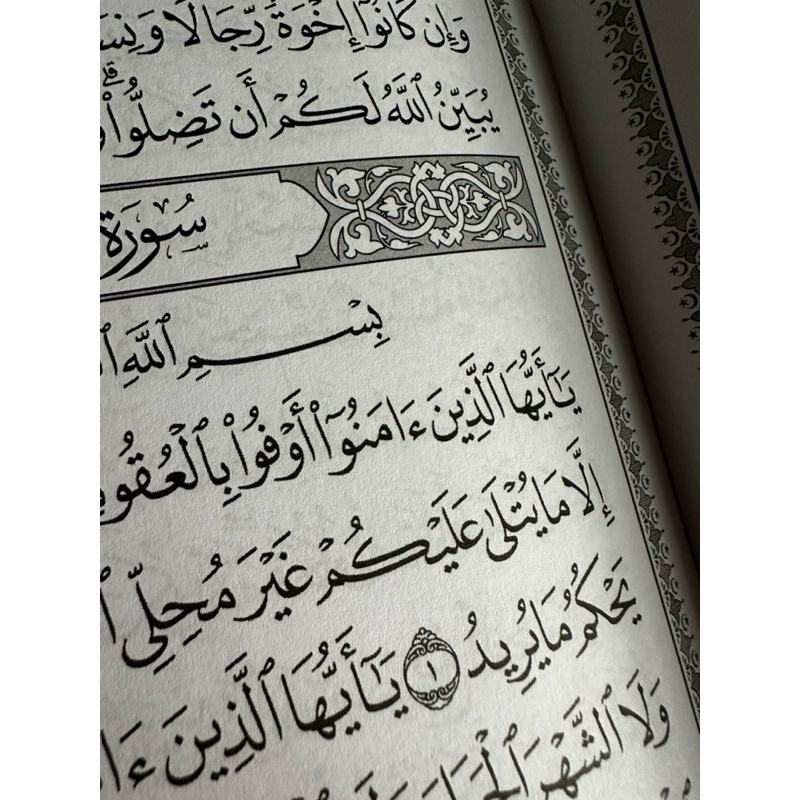 وَإِن كَانُوٓا۟ إِخْوَةً رِّجَالًا
يُبَيِّنُ ٱللَّهُ لَكُمْ أَن تَضِلُّوا۟ ۗ
سُورَةُ
بِسْمِ ٱللَّهِ
يَٰٓأَيُّهَا ٱلَّذِينَ ءَامَنُوٓا۟ أَوْفُوا۟
إِلَّا مَا يُتْلَىٰ عَلَيْكُمْ غَيْرَ مُحِلِّى
يَحْكُمُ مَا يُرِيدُ ١ يَٰٓأَيُّهَا ٱلَّذِينَ
وَلَا ٱلشَّهْرَ